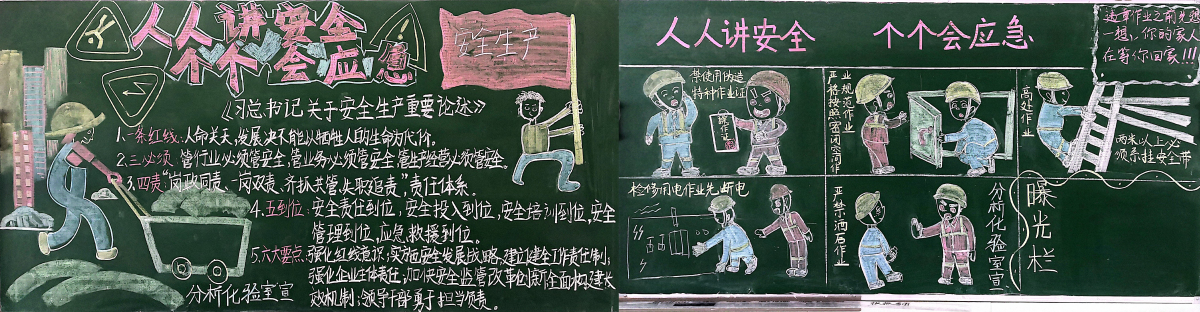 人人讲安全
个个会应急
安全生产
《习总书记关于安全生产重要论述》
1.一条红线:人命关天,发展决不能以牺牲人的生命为代价。
2.三必须:管行业必须管安全,管业务必须管安全,管生产经营必须管安全
3.四责“党政同责、一岗双责、齐抓共管、失职追责”责任体系.
4.五到位:安全责任到位,安全投入到位,安全培训到位,安全
管理到位,应急救援到位。
5.六大要点:强化红线意识;实施安全发展战略;建立健全工作责任制;
强化企业主体责任;加快安全监管改革创新;全面构建长
效机制;领导干部勇于担当负责.
分析化验室宣
人人讲安全 个个会应急
违章作业之前先想
一想,你的家人
在等你回家!!!
禁使用伪造
特种作业证
操作证
严格按照密闭空间作
业规范作业
高处作业
两米以上必
须系挂安全带
检修用电作业先断电
严禁酒后作业
分析化验室宣
曝光栏